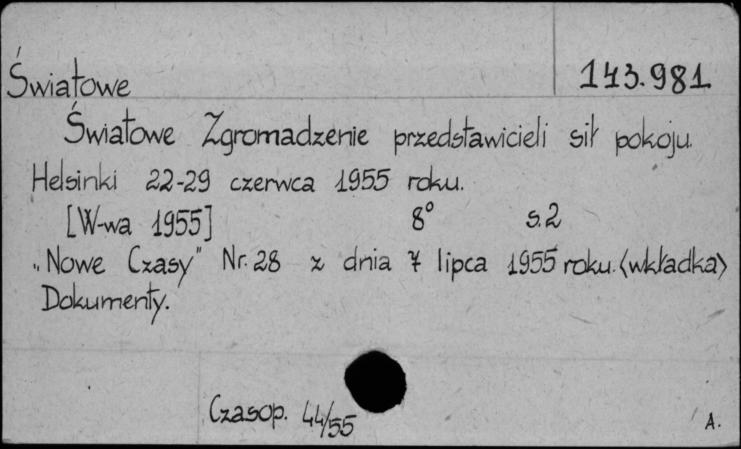 Światowe 143.981
Światowe Zgromadzenie przedstawicieli sił pokoju.
Helsinki 22-29 czerwca 1955 roku.
[W-wa 1955] 8° s.2
„Nowe Czasy" Nr. 28 z dnia 7 lipca 1955 roku. <wkładka>
Dokumenty.
Czasop. 44/55
A.